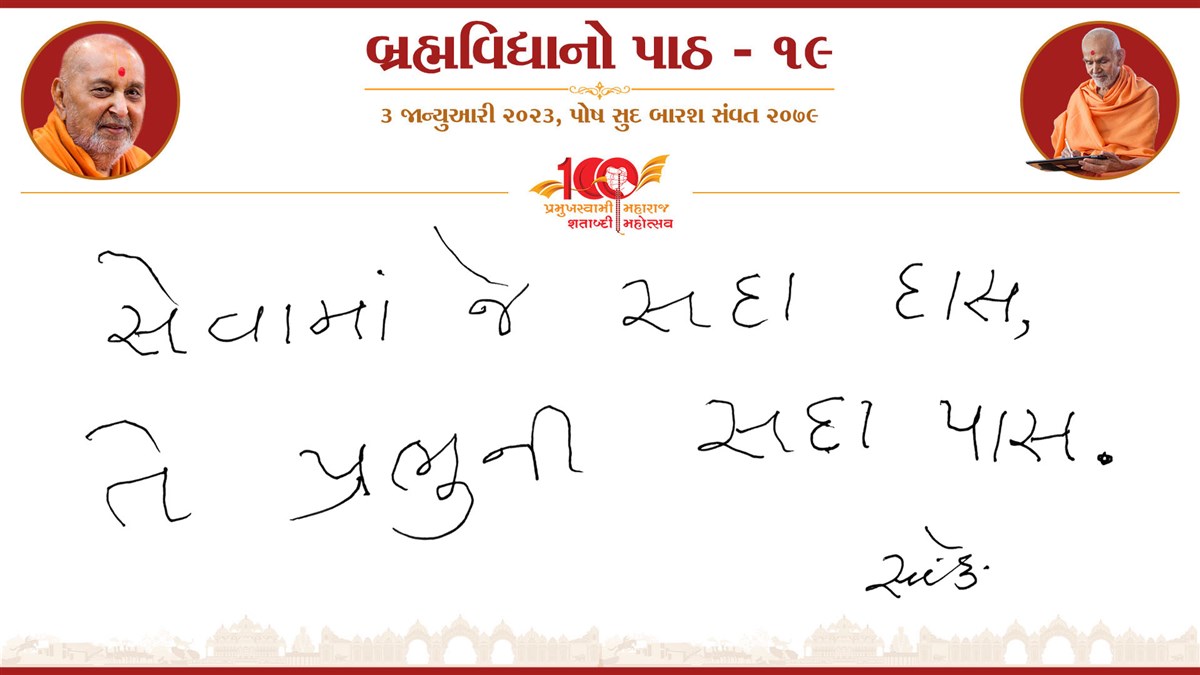 બ્રહ્મવિદ્યાનો પાઠ - ૧૯
૩ જાન્યુઆરી ૨૦૨૩, પોષ સુદ બારશ સંવત ૨૦૭૯
100
પ્રમુખસ્વામી મહારાજ
શતાબ્દી મહોત્સવ
સેવામાં જે સદા દાસ,
તે પ્રભુની સદા પાસ.